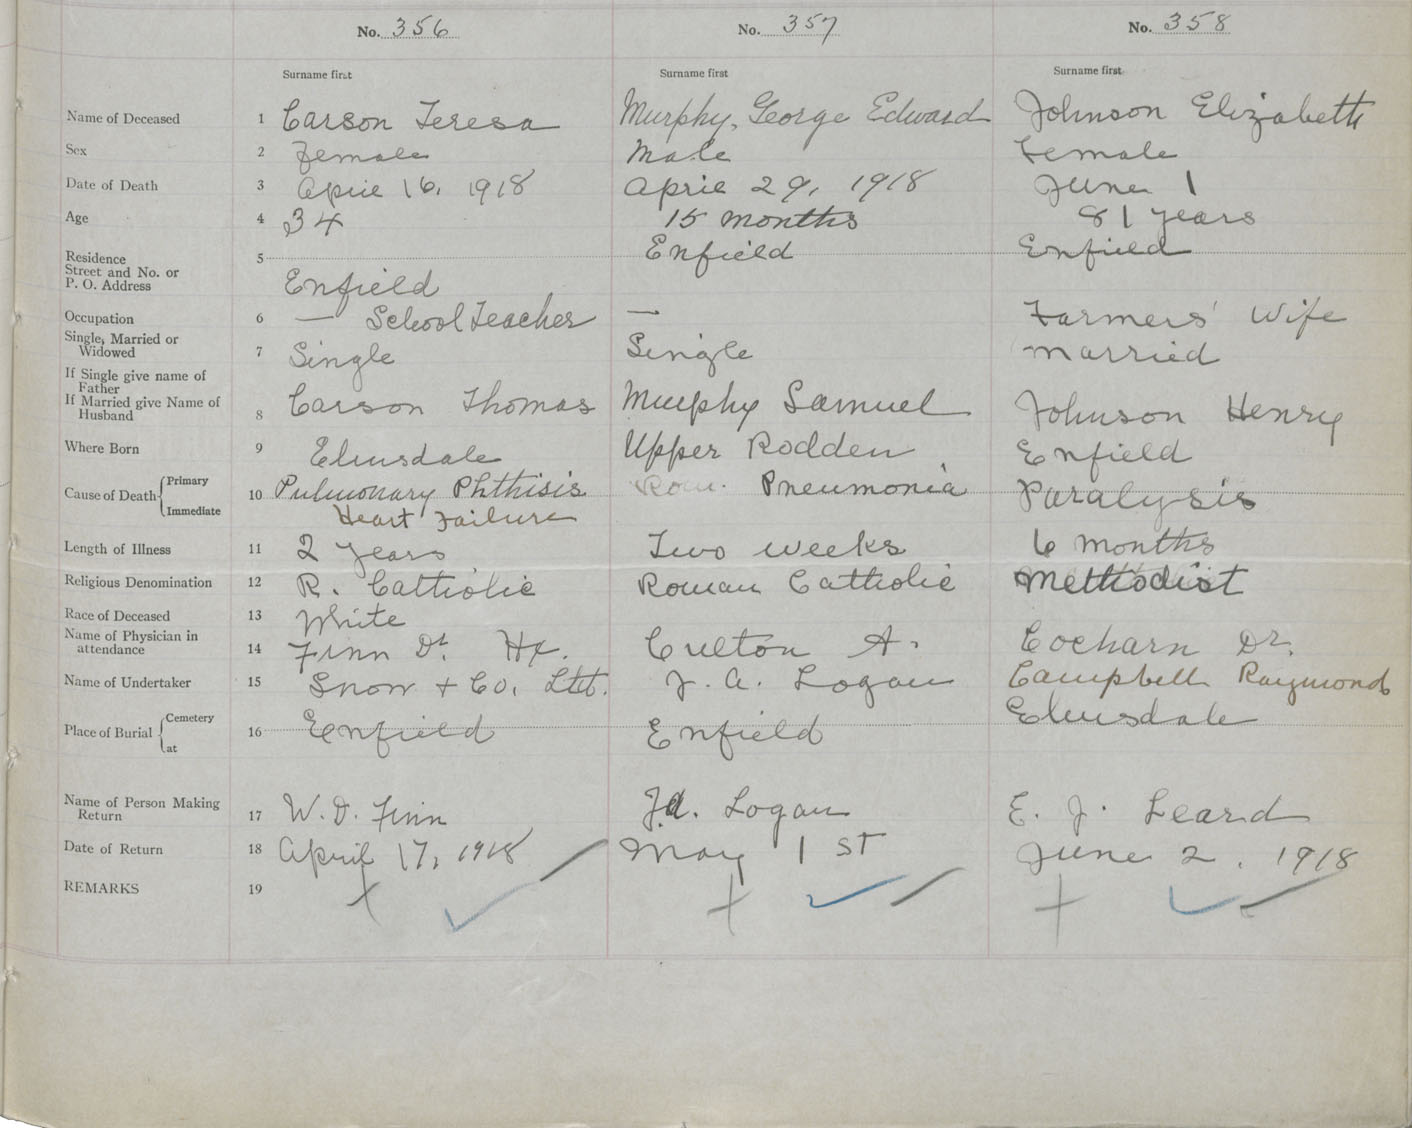 No. 356 No. 357 No. 358
Surname first Surname first Surname first
Name of Deceased 1 Carson Teresa Murphy, George Edward Johnson Elizabeth
Sex 2 Female Male Female
Date of Death 3 April 16, 1918 April 29, 1918 June 1
Age 4 34 15 months 81 years
Residence 5 Enfield Enfield
Street and No. or
P. O. Address Enfield
Occupation 6 — School Teacher — Farmers' Wife
Single, Married or
Widowed 7 Single Single Married
If Single give name of
Father
If Married give Name of
Husband 8 Carson Thomas Murphy Samuel Johnson Henry
Where Born 9 Elmsdale Upper Rodden Enfield
Cause of Death { Primary
10 Pulmonary Phthisis Pneumonia Paralysis
Immediate Heart Failure
Length of Illness 11 2 years Two weeks 6 months
Religious Denomination 12 R. Catholic Roman Catholic Methodist
Race of Deceased 13 White
Name of Physician in
attendance 14 Finn Dr. Hx. Culton A. Cocharn Dr.
Name of Undertaker 15 Snow + Co. Ltd. J. A. Logan Campbell Raymond
Place of Burial { Cemetery Elmsdale
16 Enfield Enfield
at
Name of Person Making
Return 17 W. D. Finn J.A. Logan E. J. Leard
Date of Return 18 April 17, 1918 May 1 ST June 2, 1918
REMARKS 19